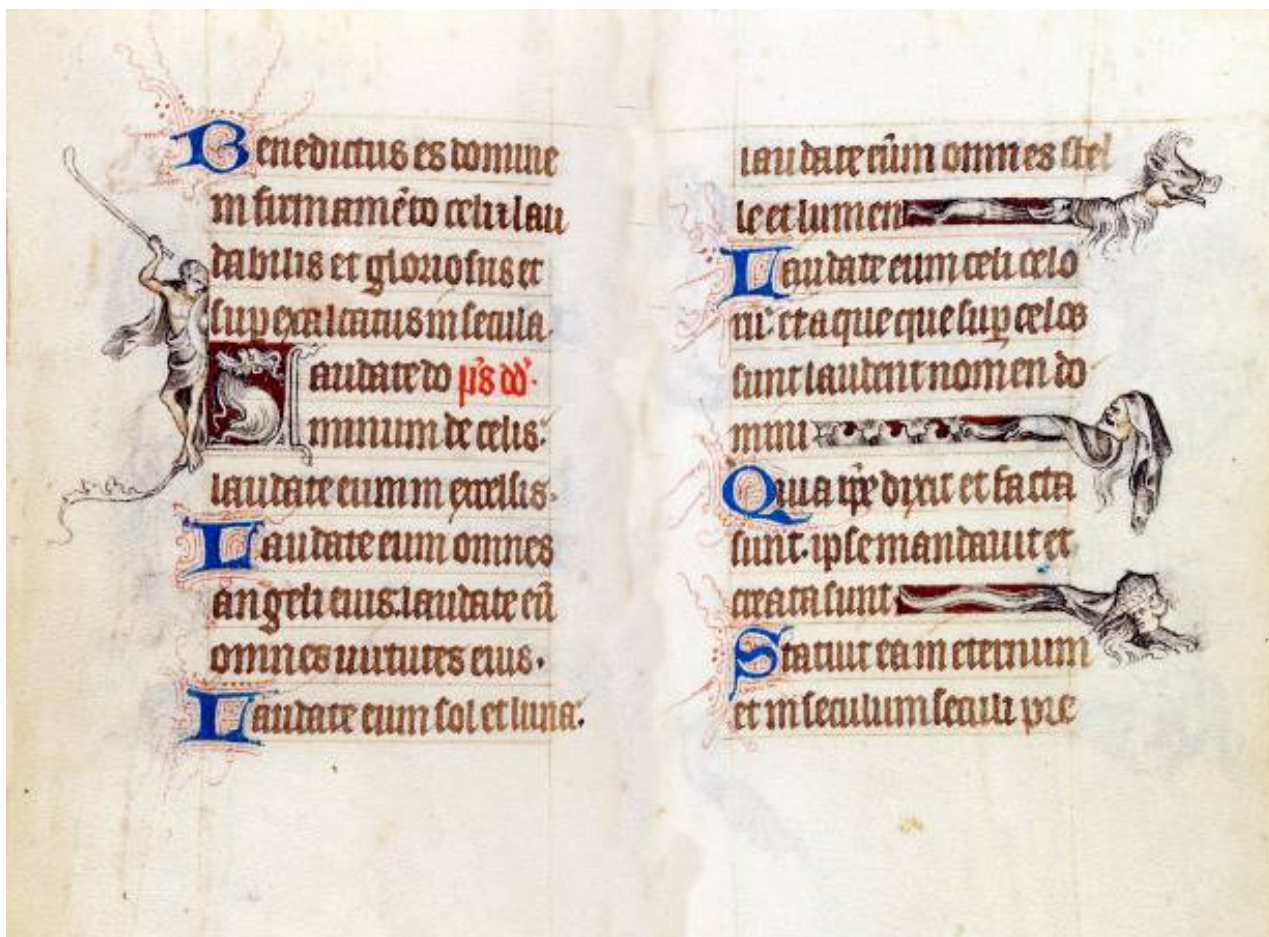 Benedictus es domine
in firmamēto celi: lau
dabilis et gloriosus et
suꝑ exaltatus in secula.
Laudate do p̄s dd̾.
minum de celis:
laudate eum in excelsis.
Laudate eum omnes
angeli eius. laudate eū
omnes uirtutes eius.
Laudate eum sol et luna:
laudate eūm omnes stel
le et lumen
Laudate eum celi celo
rū: et aque que suꝑ celos
sunt laudent nomen do
mini
Quia ip̄e dixit et facta
sunt. ipse mandauit et
creata sunt
Statuit ea in eternum
et in seculum seculi pre